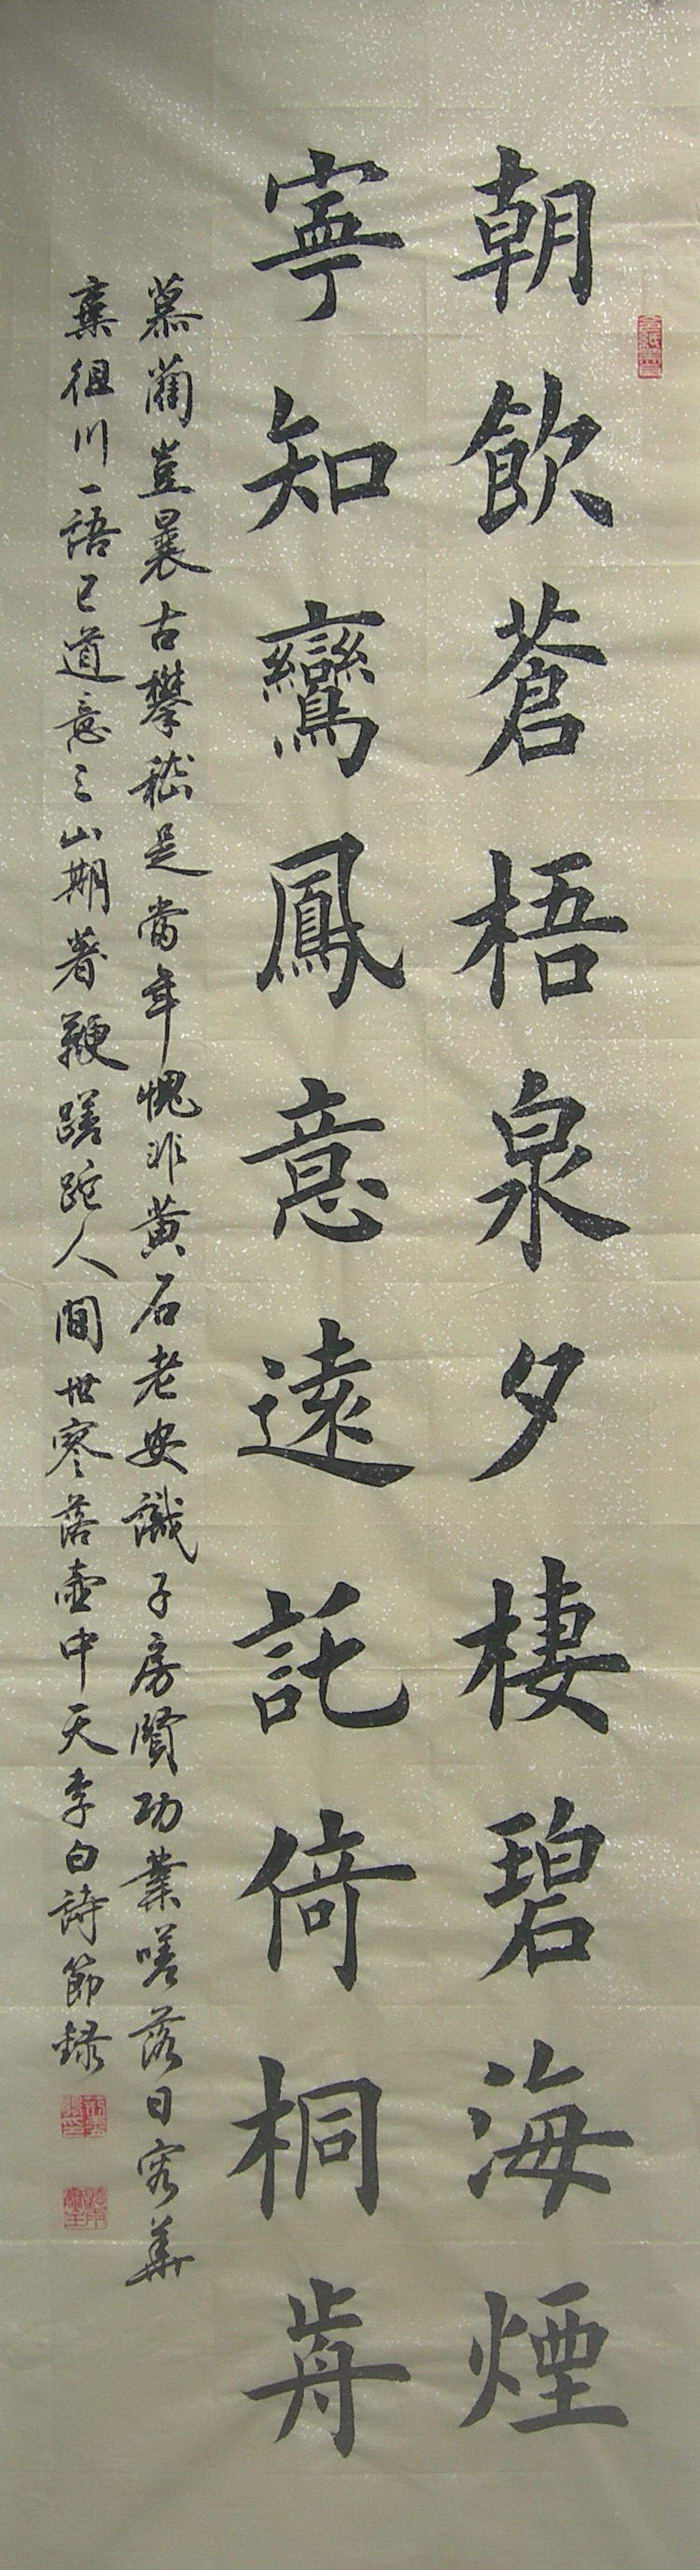 朝飲蒼梧泉夕棲碧海煙
寧知鸞鳳意遠託倚桐歬
慕藺豈曩古攀嵇是當年愧非黃石老安識子房賢功業嗟落日容華
棄徂川一語已道意三山期著鞭蹉跎人間世寥落壺中天李白詩節録